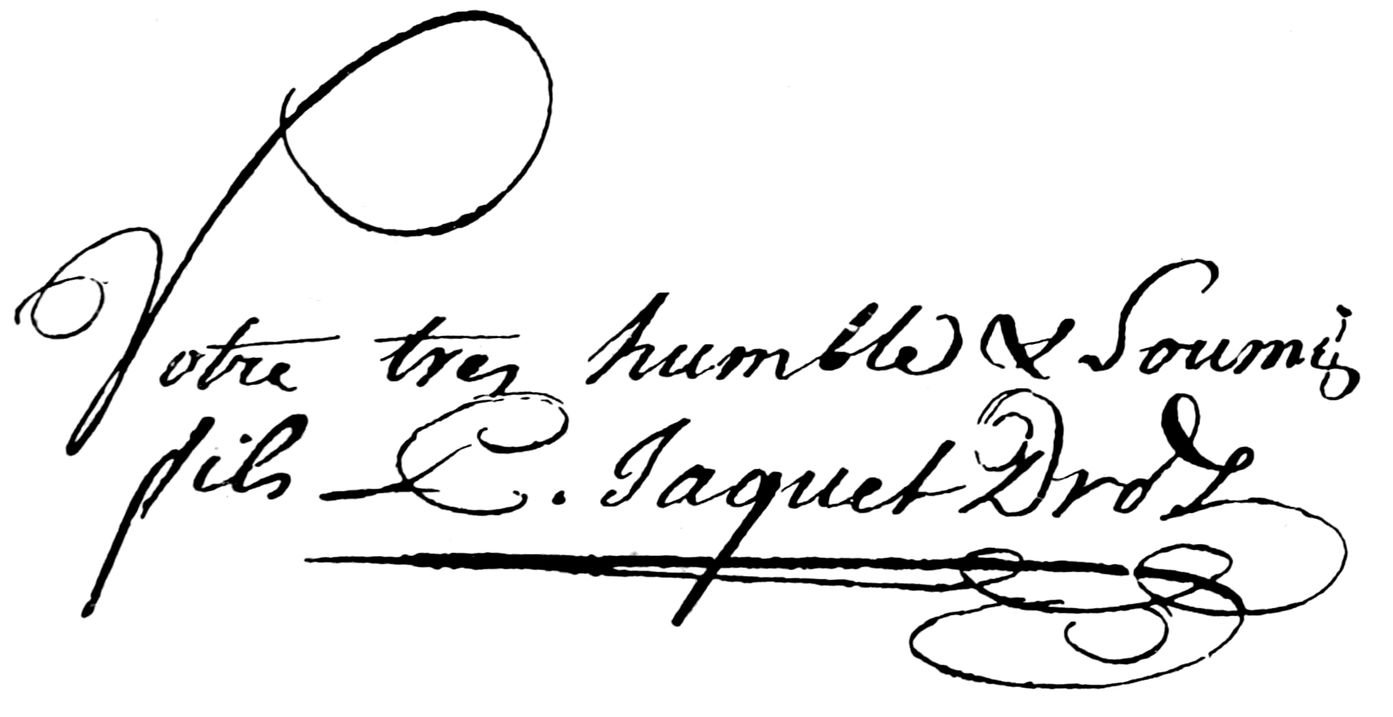 Votre tres humble & Soumis
fils C. Jaquet Droz